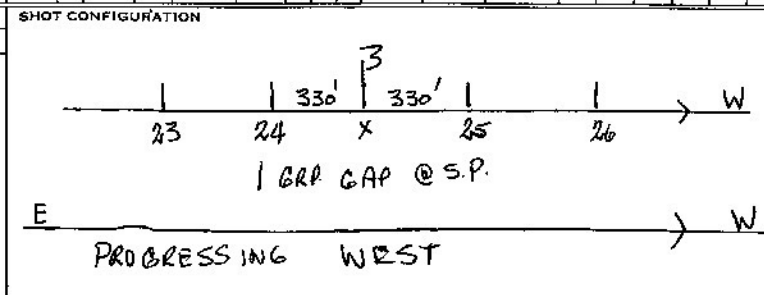 SHOT CONFIGURATION
3
330' 330'
W
23 24 X 25 26
1 GRP. GAP @ S.P.
E W
PROGRESSING WEST